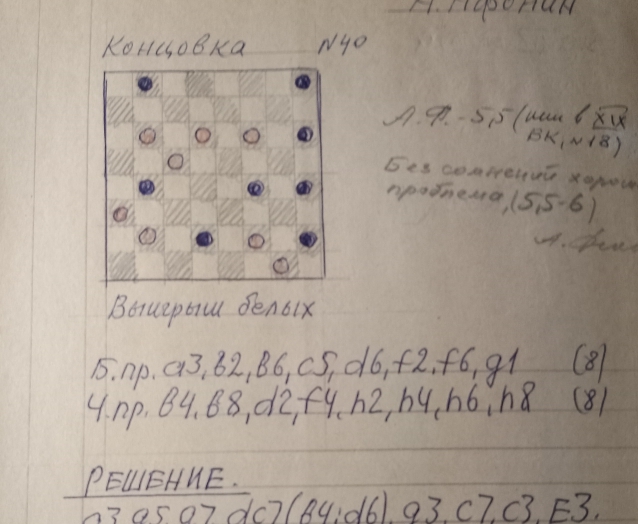 Концовка №40
Л.Ф. - 5,5 (или в XIX
ВК, №18)
Без сомнений хорош
проблема, (5,5-6)
Выигрыш белых
Б.пр. а3, в2, в6, с5, d6, f2, f6, g1 (8)
Ч.пр. в4, в8, d2, f4, h2, h4, h6, h8 (8)
РЕШЕНИЕ.
g5, a7, dc7 (в4:d6), g3, c7, c3, E3.